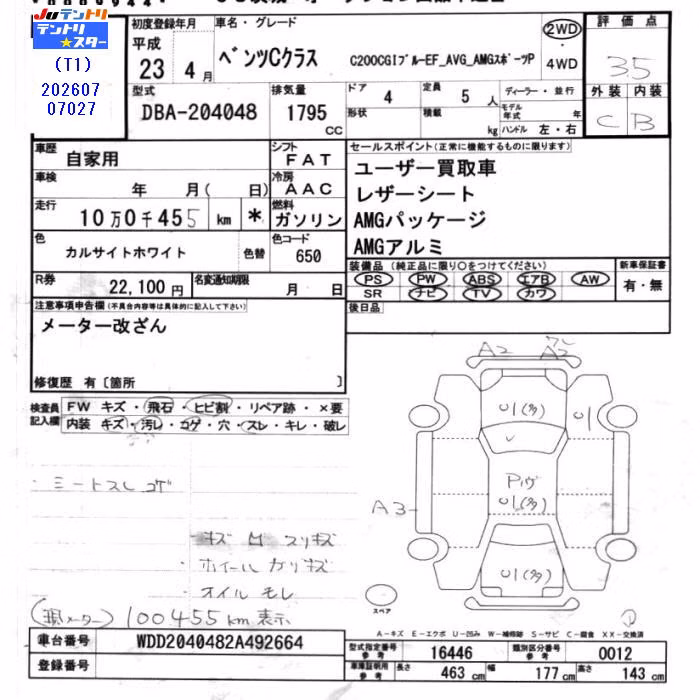 Juテントリ
テントリ
★スター
(T1)
202607
07027
初度登録年月
平成
23 4 月
車名・グレード
ベンツCクラス C200CGIブルーEF_AVG_AMGスポーツP
2WD
4WD
評価点
3.5
外装 内装
C B
型式
DBA-204048
排気量
1795
CC
ドア
4
定員
5 人
形状
積載
kg
ディーラー・並行
モデル年式 年
ハンドル 左・右
車歴
自家用
シフト
FAT
車検
年 月( 日)
冷房
AAC
走行
10万0千455 km *
燃料
ガソリン
色
カルサイトホワイト
色替
色コード
650
R券
22,100 円
名変通知期限
月 日
セールスポイント(正常に機能するものに限ります)
ユーザー買取車
レザーシート
AMGパッケージ
AMGアルミ
装備品 (純正品に限り○をつけてください)
PS PW ABS エアB AW
SR ナビ TV カワ
新車保証書
有・無
後日品
注意事項申告欄(不具合内容等は具体的に記入して下さい)
メーター改ざん
修復歴 有〔箇所 〕
検査員記入欄
FW キズ・飛石・ヒビ割・リペア跡・×要
内装 キズ・汚レ・コゲ・穴・スレ・キレ・破レ
・シートスレ コゲ
キズ 凹 スリキズ
ホイール ガリキズ
・オイル モレ
(現メーター) 100455km表示
A2 A2
U1(多) U1
U1(多)
A3
U1(多)
スペア
A-キズ E-エクボ U-凹み W-補修跡 S-サビ C-腐食 XX-交換済
車台番号
WDD2040482A492664
登録番号
型式指定番号 参考
16446
類別区分番号 参考
0012
車庫証明用 参考
長さ 463 cm 幅 177 cm 高さ 143 cm